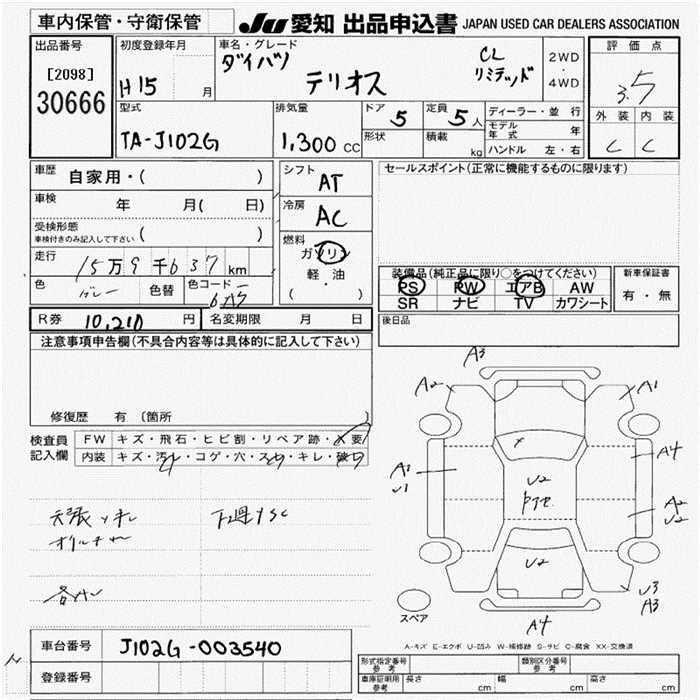 車内保管・守衛保管
JU 愛知 出品申込書 JAPAN USED CAR DEALERS ASSOCIATION
出品番号
[2098]
30666
初度登録年月
H15 月
車名・グレード
ダイハツ
テリオス
CL
リミテッド
2WD
・
4WD
評価点
3.5
外装 内装
C C
型式
TA-J102G
排気量
1,300 CC
ドア 5
形状
定員 5 人
積載 kg
ディーラー・並行
モデル年式 年
ハンドル 左・右
車歴 自家用・( )
車検 年 月( 日)
受検形態
車検付きのみ記入して下さい ( )
走行 15万9千637km
色 グレー 色替 色コード
シフト AT
冷房 AC
燃料
ガソリン
軽・油
( ・ )
セールスポイント(正常に機能するものに限ります)
装備品(純正品に限り○をつけてください)
PS PW エアB AW
SR ナビ TV カワシート
新車保証書
有・無
R券 10,210 円 名変期限 月 日
後日品
注意事項申告欄(不具合内容等は具体的に記入して下さい)
修復歴 有 (箇所 )
検査員
記入欄
FW キズ・飛石・ヒビ割・リペア跡・X要
内装 キズ・汚れ・コゲ・穴・スレ・キレ・破れ
A3
A2 A1
A4
A1
U1
U2
A2
U2
U2
U3
A3
スペア
A4
A-キズ E-エクボ U-凹み W-補修跡 S-サビ C-腐食 XX-交換済
車台番号 J102G-003540
登録番号
型式指定番号
参考
類別区分番号
参考
車庫証明用
参考
長さ cm 幅 cm 高さ cm